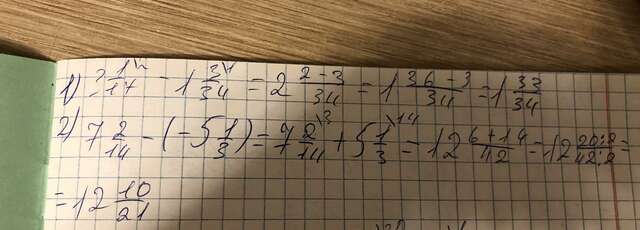 1) 3 1/17\2 - 1 3/34\1 = 2 2-3/34 = 1 36-3/34 = 1 33/34
2) 7 2/14 - (-5 1/3) = 7 2/14\3 + 5 1/3\14 = 12 6+14/42 = 12 20:2/42:2 =
= 12 10/21